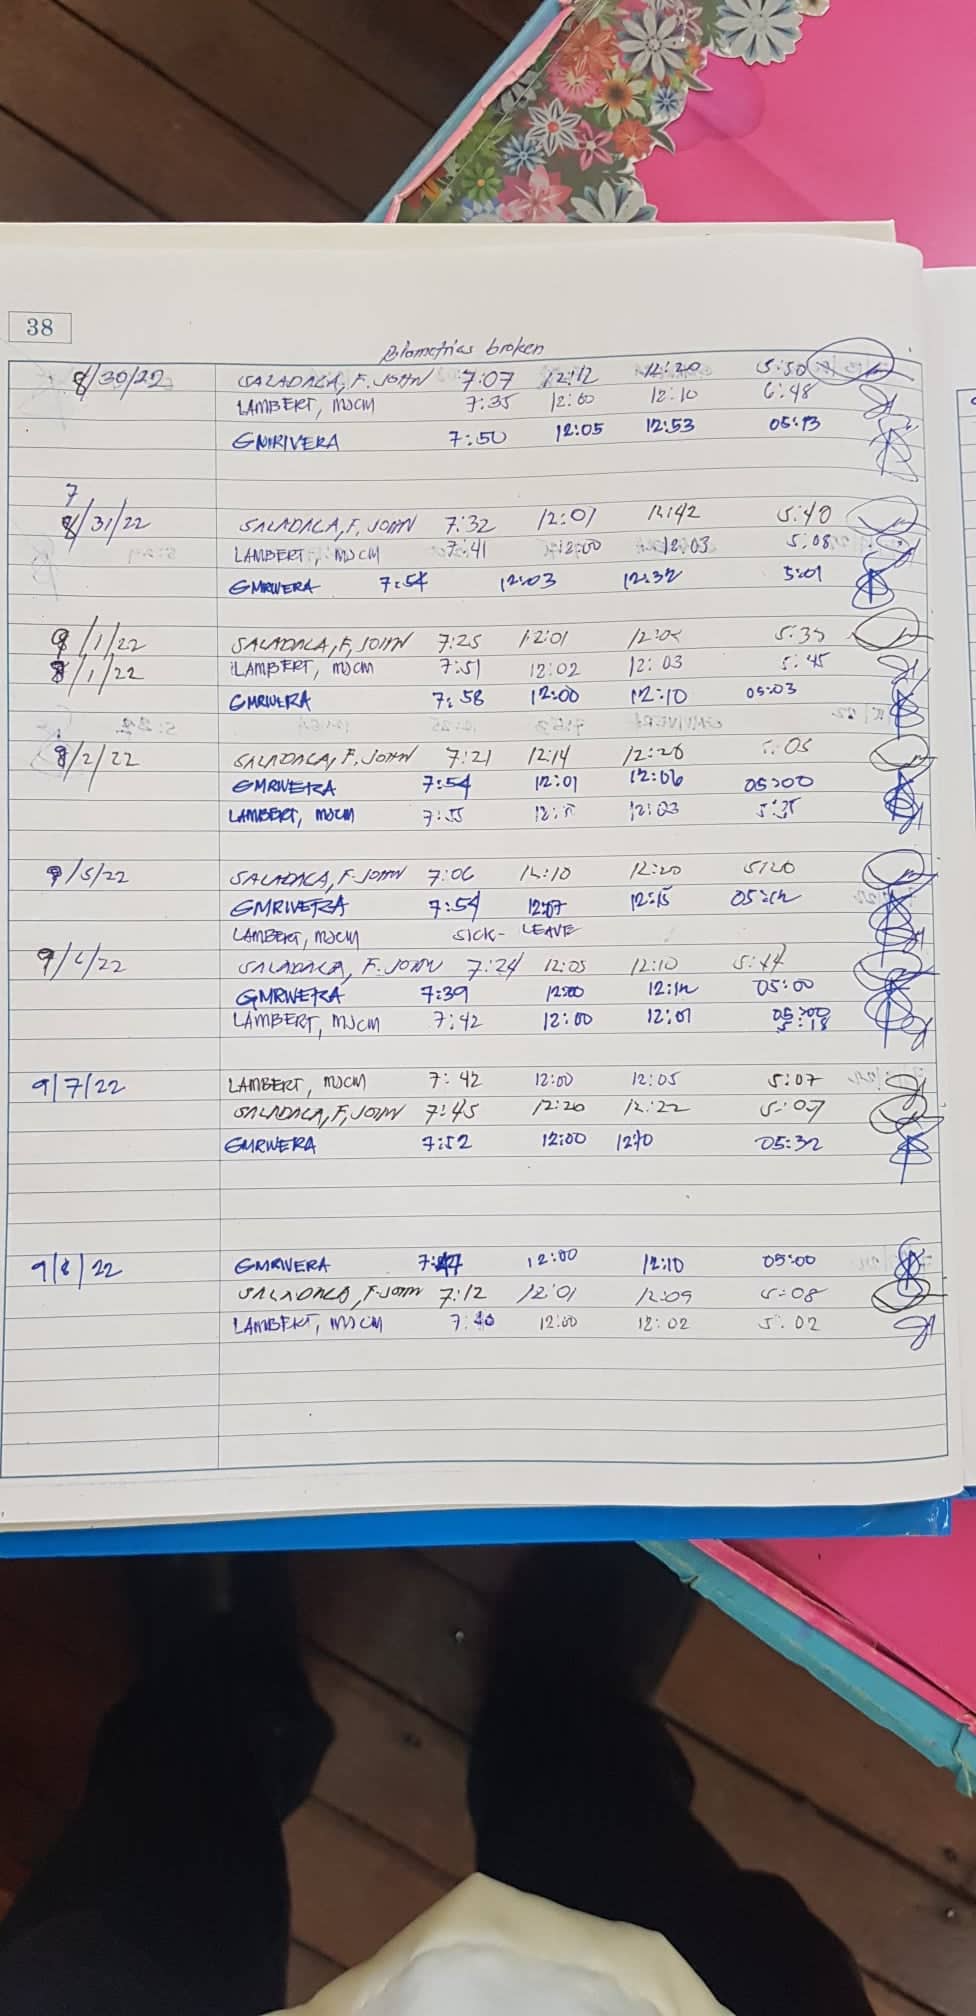 38
Biometrics broken
8/30/22 SALADAGA, F. JOHN 7:07 12:12 12:20 5:50
LAMBERT, MJCM 7:35 12:00 12:10 6:48
GMRIVERA 7:50 12:05 12:53 05:13
7
8/31/22 SALADAGA, F. JOHN 7:32 12:01 12:42 5:40
LAMBERT, MJCM 7:41 12:00 12:03 5:08
GMRIVERA 7:54 12:03 12:32 5:01
9/1/22 SALADAGA, F. JOHN 7:25 12:01 5:35
/1/22 LAMBERT, MJCM 7:51 12:02 12:03 5:45
GMRIVERA 7:58 12:00 12:10 05:03
/2/22 SALADAGA, F. JOHN 7:21 12:14 12:26 :05
GMRIVERA 7:54 12:01 12:06 05:00
LAMBERT, MJCM 7:55 12:03 5:35
9/5/22 SALADAGA, F. JOHN 7:06 12:10 12:20 5:20
GMRIVERA 7:54 12:07 12:15 05:12
LAMBERT, MJCM SICK- LEAVE
9/6/22 SALADAGA, F. JOHN 7:24 12:05 12:10 5:44
GMRIVERA 7:39 12:00 12:12 05:00
LAMBERT, MJCM 7:42 12:00 12:01 05:00
5:18
9/7/22 LAMBERT, MJCM 7:42 12:00 12:05 5:07
SALADAGA, F. JOHN 7:45 12:20 12:22 5:07
GMRIVERA 7:52 12:00 12:10 05:32
9/8/22 GMRIVERA 7:47 12:00 12:10 05:00
SALADAGA, F. JOHN 7:12 12:01 12:09 5:08
LAMBERT, MJCM 7:40 12:00 12:02 5:02